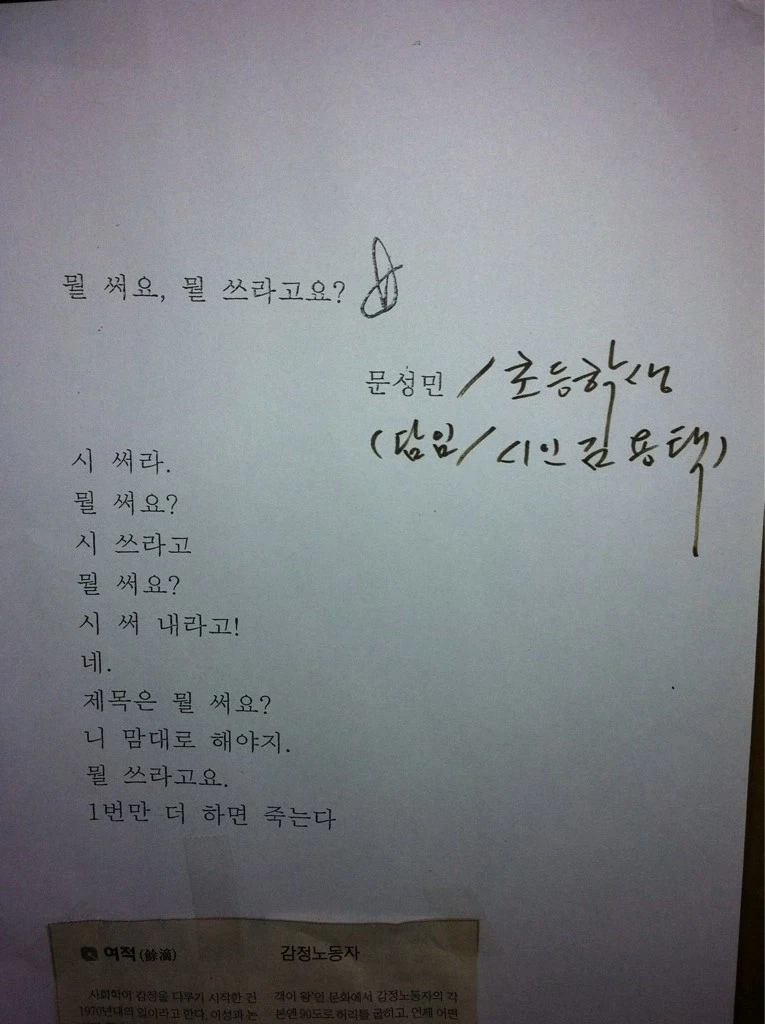 뭘 써요, 뭘 쓰라고요?
문성민 / 초등학생
(담임/시인 김용택)
시 써라.
뭘 써요?
시 쓰라고
뭘 써요?
시 써 내라고!
네.
제목은 뭘 써요?
니 맘대로 해야지.
뭘 쓰라고요.
1번만 더 하면 죽는다
여적(餘滴)
감정노동자
사회학이 감정을 다루기 시작한 건
1970년대의 일이라고 한다. 이성과 논
객이 왕'인 문화에서 감정노동자의 각
본엔 90도로 허리를 굽히고, 언제 어떤